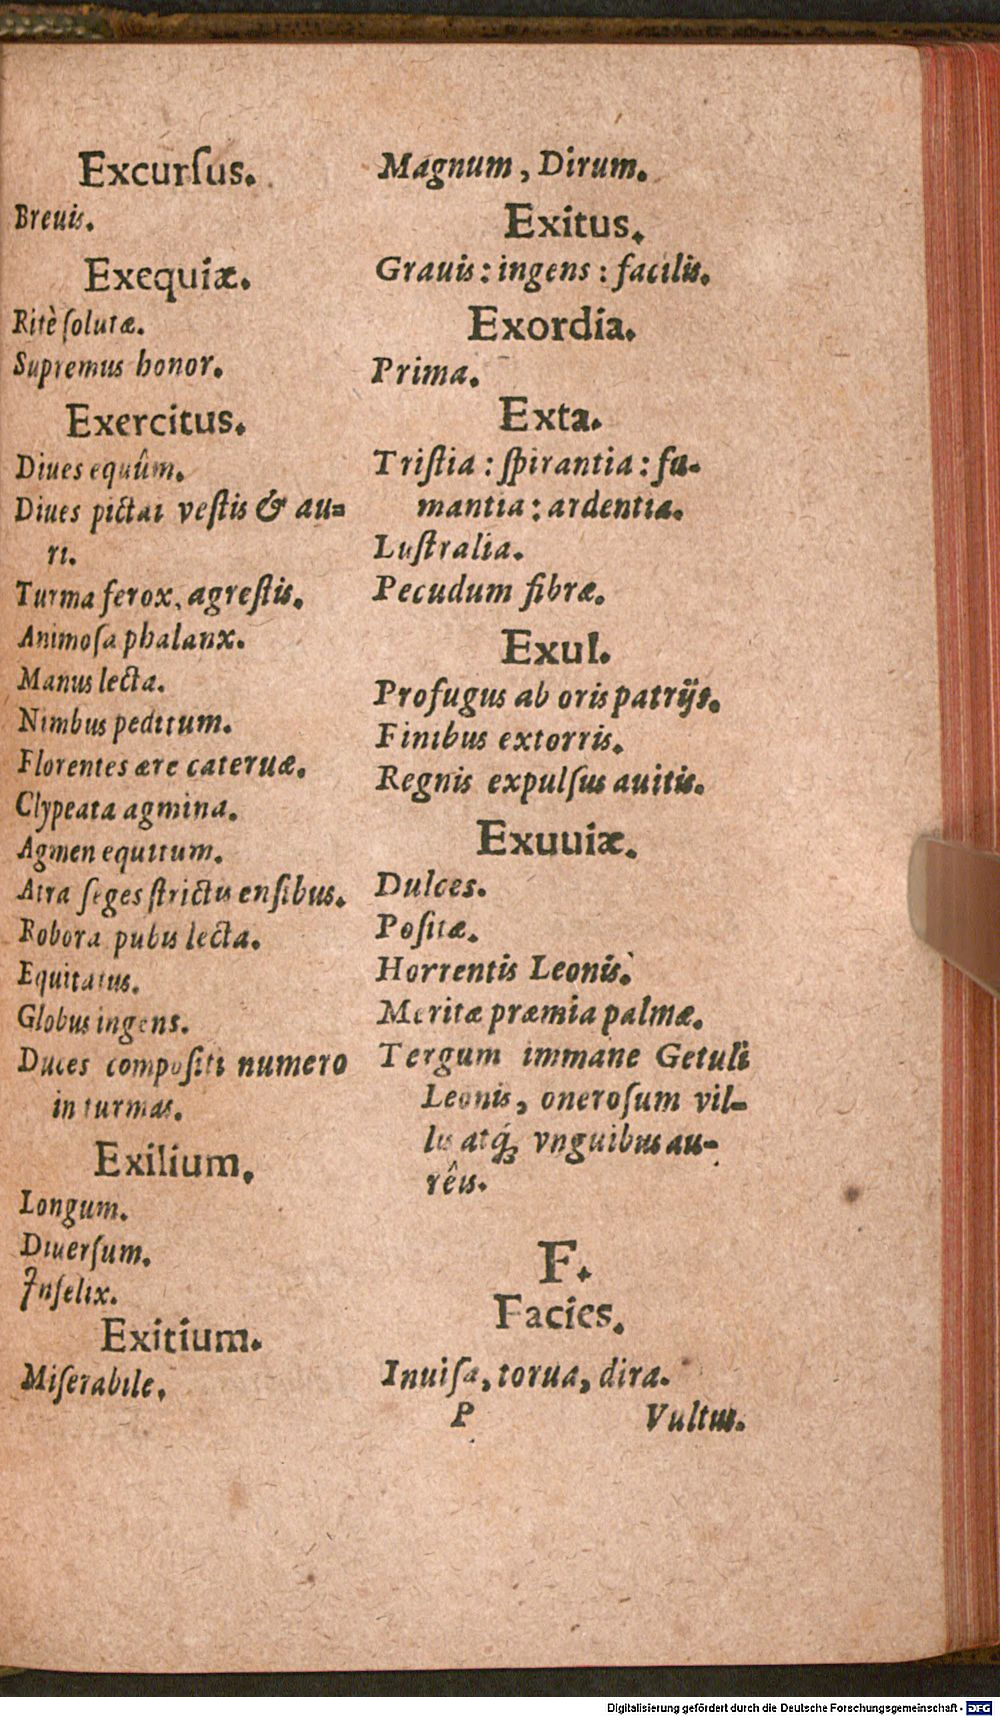 Excurſus.
Breuis.
Exequiæ.
Ritè ſolutæ.
Supremus honor.
Exercitus.
Diues equûm.
Diues pictai veſtis & au-
ri.
Turma ferox, agreſtis.
Animoſa phalanx.
Manus lecta.
Nimbus peditum.
Florentes ære cateruæ.
Clypeata agmina.
Agmen equitum.
Atra ſeges ſtrictis enſibus.
Robora pubis lecta.
Equitatus.
Globus ingens.
Duces compoſiti numero
in turmas.
Exilium.
Longum.
Diuerſum.
Inſelix.
Exitium.
Miſerabile.
Magnum, Dirum.
Exitus.
Grauis: ingens: facilis.
Exordia.
Prima.
Exta.
Triſtia: ſpirantia: fu-
mantia: ardentia.
Luſtralia.
Pecudum fibræ.
Exul.
Profugus ab oris patrijs.
Finibus extorris.
Regnis expulſus auitis.
Exuuiæ.
Dulces.
Poſitæ.
Horrentis Leonis.
Meritæ præmia palmæ.
Tergum immane Getuli
Leonis, oneroſum vil-
lis atq́; vnguibus au-
rêis.
F.
Facies.
Inuiſa, torua, dira.
P Vultus.
Digitalisierung gefördert durch die Deutsche Forschungsgemeinschaft - DFG